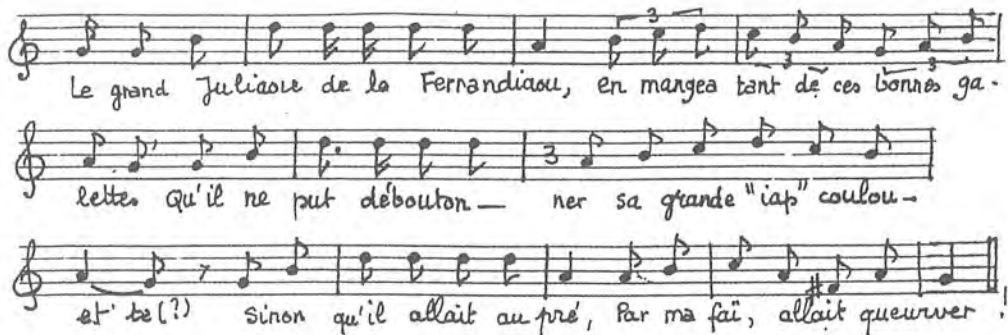 3
Le grand Juliaou de la Fernandiaou, en mangea tant de ces bonnes ga-
3 3
lette. Qu'il ne put débouton — ner sa grande "iap" coulou-
3
et' te (?) Sinon qu'il allait au pré, Par ma faï, allait queurver